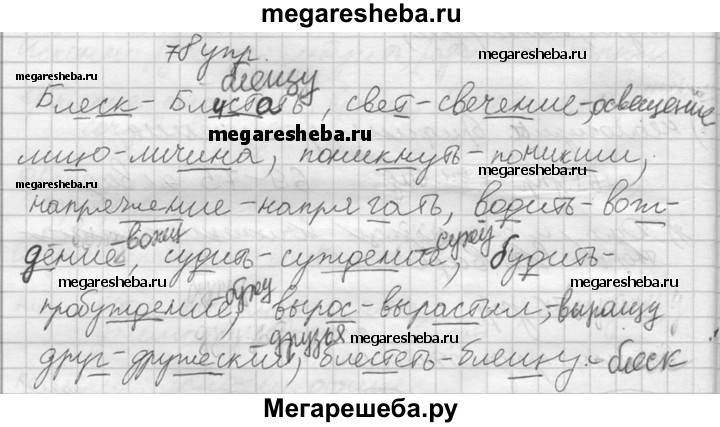 megaresheba.ru
78 упр.
megaresheba.ru
блещу
megaresheba.ru
Блеск - Блистать, свет - свечение - освещение
megaresheba.ru
лицо - личина, поникнуть - поникший,
megaresheba.ru
напряжение - напрягать, водить - вож-
- вожу
- сужу
дение, судить - суждение, будить -
megaresheba.ru
megaresheba.ru
бужу
пробуждение, вырос - вырастил, - выращу
- друзья
megaresheba.ru
друг - дружеский, блестеть - блещу - блеск
megaresheba.ru
Мегарешеба.ру